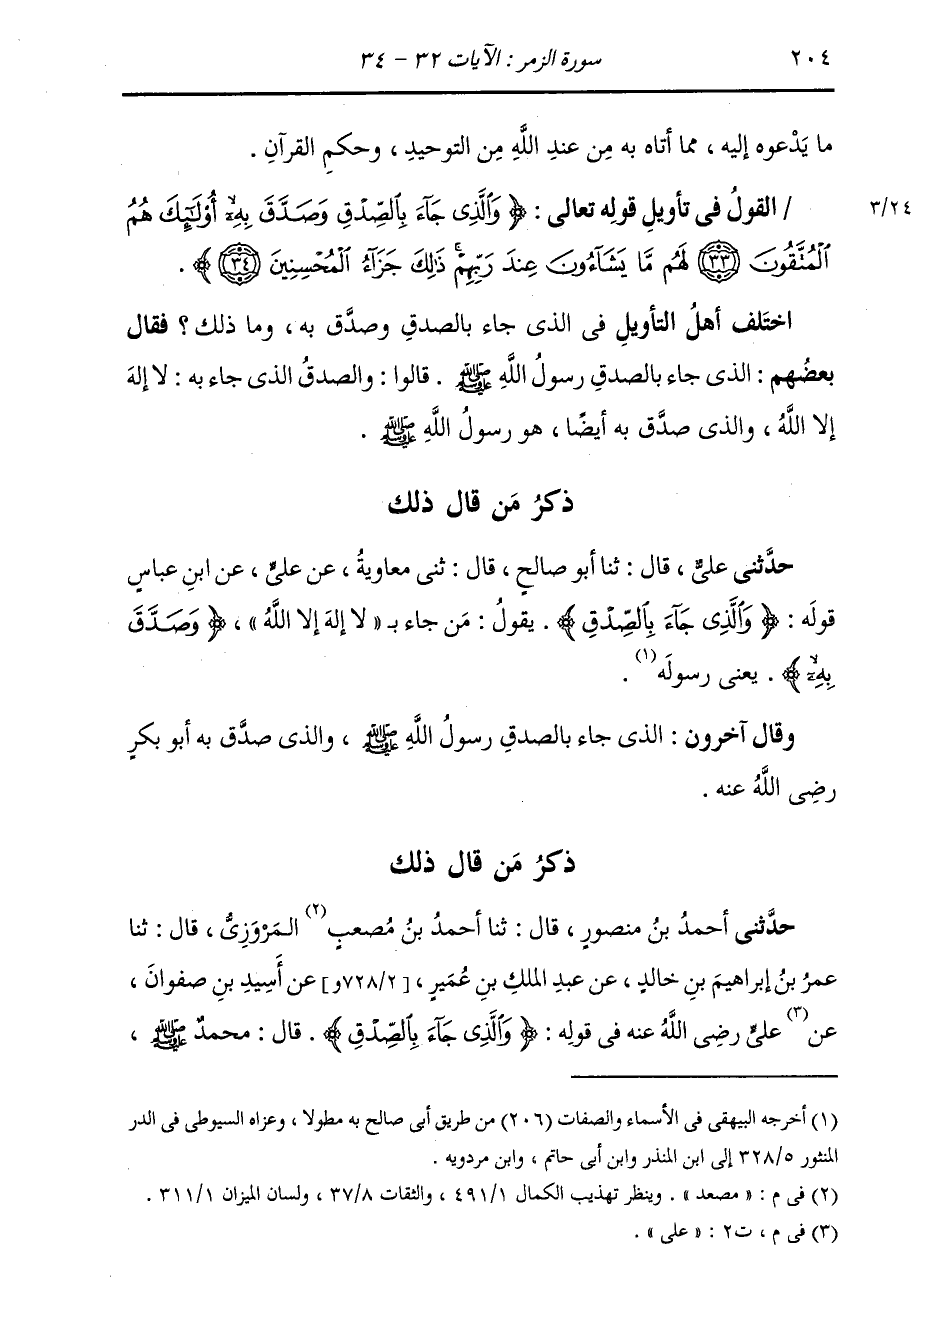 ٢٠٤ سورة الزمر : الآيات ٣٢ - ٣٤
ما يَدْعوه إليه ، مما أتاه به مِن عندِ اللَّهِ مِن التوحيدِ ، وحكمِ القرآنِ .
٣/٢٤ / القولُ فى تأويلِ قولِه تعالى : ﴿ وَٱلَّذِى جَآءَ بِٱلصِّدْقِ وَصَدَّقَ بِهِۦٓۙ أُوْلَٰٓئِكَ هُمُ
ٱلْمُتَّقُونَ ٣٣ لَهُم مَّا يَشَآءُونَ عِندَ رَبِّهِمْۚ ذَٰلِكَ جَزَآءُ ٱلْمُحْسِنِينَ ٣٤ ﴾ .
اختَلف أهلُ التأويلِ فى الذى جاء بالصدقِ وصدَّق به ، وما ذلك ؟ فقال
بعضُهم : الذى جاء بالصدقِ رسولُ اللَّهِ ﷺ . قالوا : والصدقُ الذى جاء به : لا إلهَ
إلا اللَّهُ ، والذى صدَّق به أيضًا ، هو رسولُ اللَّهِ ﷺ .
ذكرُ مَن قال ذلك
حدَّثنى علىٌّ ، قال : ثنا أبو صالحٍ ، قال : ثنى معاويةُ ، عن علىٍّ ، عن ابنِ عباسٍ
قولَه : ﴿ وَٱلَّذِى جَآءَ بِٱلصِّدْقِ ﴾ . يقولُ : مَن جاء بـ « لا إلهَ إلا اللَّهُ » ، ﴿ وَصَدَّقَ
بِهِۦٓۙ ﴾ . يعنى رسولَه (١) .
وقال آخرون : الذى جاء بالصدقِ رسولُ اللَّهِ ﷺ ، والذى صدَّق به أبو بكرٍ
رضِى اللَّهُ عنه .
ذكرُ مَن قال ذلك
حدَّثنى أحمدُ بنُ منصورٍ ، قال : ثنا أحمدُ بنُ مُصعبٍ (٢) المَرْوَزِىُّ ، قال : ثنا
عمرُ بنُ إبراهيمَ بنِ خالدٍ ، عن عبدِ الملكِ بنِ عُمَيرٍ ، [ ٧٢٨/٢و ] عن أَسِيدِ بنِ صفوانَ ،
عن (٣) علىٍّ رضِى اللَّهُ عنه فى قولِه : ﴿ وَٱلَّذِى جَآءَ بِٱلصِّدْقِ ﴾ . قال : محمدٌ ﷺ ،
(١) أخرجه البيهقى فى الأسماء والصفات (٢٠٦) من طريق أبى صالح به مطولا ، وعزاه السيوطى فى الدر
المنثور ٣٢٨/٥ إلى ابن المنذر وابن أبى حاتم ، وابن مردويه .
(٢) فى م : « مصعد » . وينظر تهذيب الكمال ٤٩١/١ ، والثقات ٣٧/٨ ، ولسان الميزان ٣١١/١ .
(٣) فى م ، ت٢ : « على » .